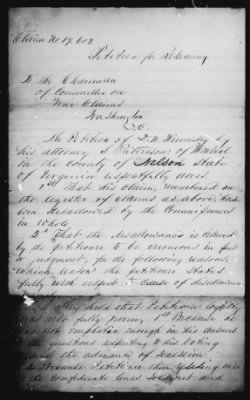 Claim No 17.602
Petition for Rehearing
To the Chairman
of Committee on
War Claims
Washington
D.C.
The Petition of J. N. by
his attorney of
in the County of Nelson State
of Virginia respectfully says
1st That his claim, numbered on
the register of claims as above, has
been disallowed by the Commissioners
in whole
2d That the disallowance is believed
by the petitioner to be erroneous in fact
or judgment, for the following reasons,
which reasons the petitioner states
fully with respect to cause of disallowance
held that Petitioner's loyalty
was not fully proven 1st Because he
was not emphatic enough in his answers
to questions respecting his voting
against the ordinance of secession
2d Because Petitioner's
the confederate lines and